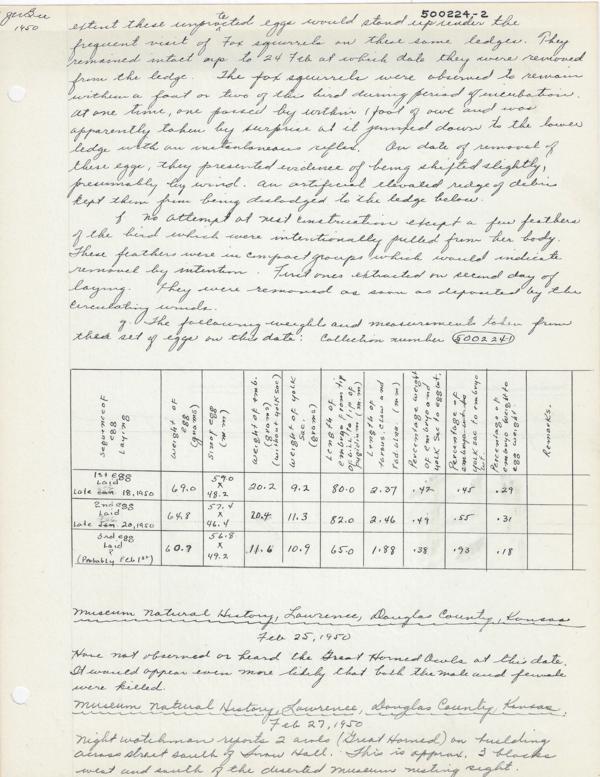 500224-2
1950
extent these unprotected eggs would stand up under the
frequent visit of Fox squirrels on these same ledges. They
remained intact up to 24 Feb at which date they were removed
from the ledge. The fox squirrels were observed to remain
within a foot or two of the bird during period of incubation.
At one time, one passed by within 1 foot of owl and was
apparently taken by surprise as it jumped down to the lower
ledge with an instantaneous reflex. On date of removal of
these eggs, they presented evidence of being shifted slightly,
presumably by wind. An artificial elevated ridge of debris
kept them from being dislodged to the ledge below.
f. No attempt at nest construction except a few feathers
of the bird which were intentionally pulled from her body.
These feathers were in compact groups which would indicate
removal by intention. First ones extracted on second day of
laying. They were removed as soon as deposited by the
circulating winds.
g. The following weights and measurements taken from
these set of eggs on this date: Collection number 500224-1
Sequence of egg Laying
Weight of egg (grams)
Size of egg (mm)
Weight of emb. (grams) (without yolk sac)
Weight of yolk sac. (grams)
Length of embryo from tip of bill to tip of pygidium (mm)
Length of tarsus, claw and (mm)
Percentage weight of embryo and yolk sac to egg wt.
Percentage of embryo wt. to yolk sac to embryo wt.
Percentage of embryo weight to egg weight
Remarks.
1st egg Laid Late Jan. 18, 1950 69.0 59.0 x 48.2 20.2 9.2 80.0 2.37 .42 .45 .29
2nd egg Laid Late Jan. 20, 1950 64.8 57.4 x 46.4 20.4 11.3 82.0 2.46 .49 .55 .31
3rd egg Laid ? (Probably Feb 1st) 60.9 56.8 x 49.2 11.6 10.9 65.0 1.88 .38 .93 .18
Museum Natural History, Lawrence, Douglas County, Kansas
Feb 25, 1950
Have not observed or heard the Great Horned Owls at this date.
It would appear even more likely that both the male and female
were killed.
Museum Natural History, Lawrence, Douglas County, Kansas.
Feb 27, 1950
Night watchman reports 2 owls (Great Horned) on building
across street south of Snow Hall. This is approx. 3 blocks
west and south of the deserted Museum nesting sight.